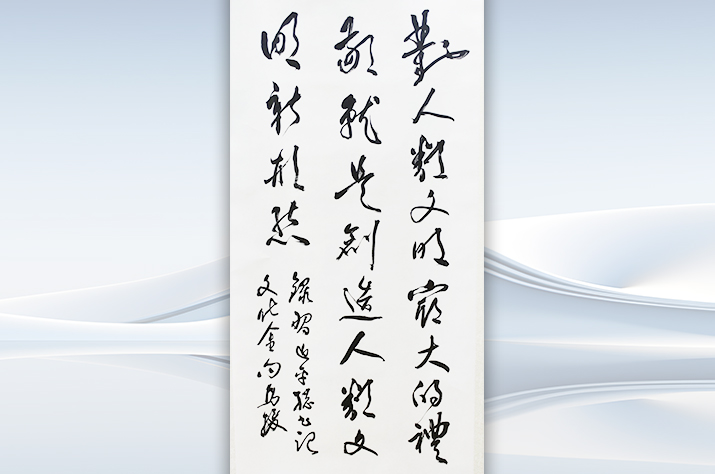 對人類文明最大的禮
敬就是創造人類文
明新形態
錄習近平總書記
文化金句馬媛